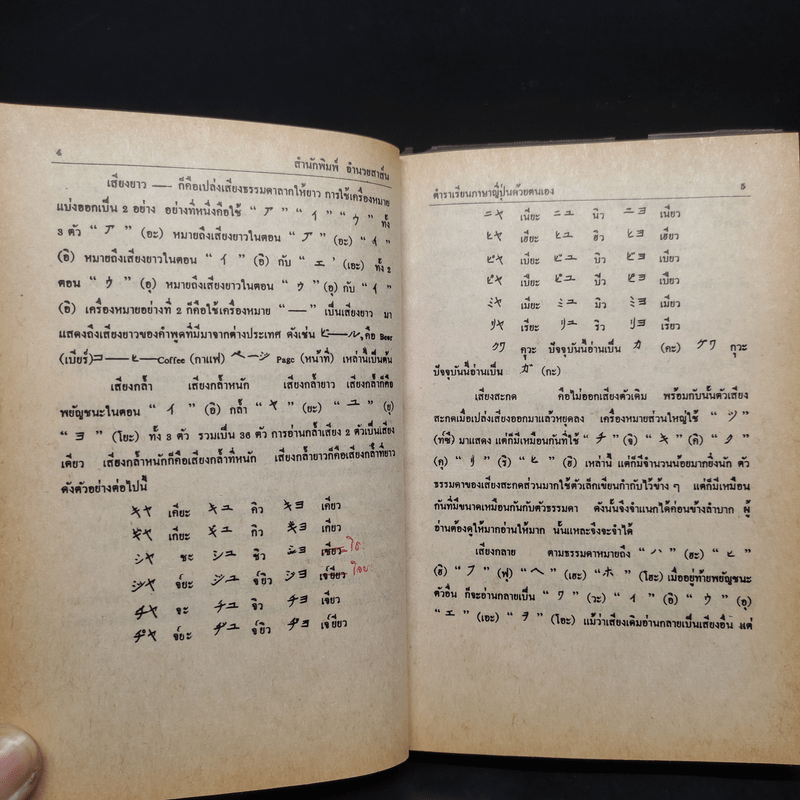 ๔
สำนักพิมพ์ อำนวยสาส์น
เสียงยาว —— ก็คือเปล่งเสียงธรรมดาลากให้ยาว การใช้เครื่องหมาย
แบ่งออกเป็น 2 อย่าง อย่างที่หนึ่งคือใช้ “ ア ” “ イ ” “ ウ ” ทั้ง
3 ตัว “ ア ” (อะ) หมายถึงเสียงยาวในตอน “ ア ” (อะ) “ イ ”
(อิ) หมายถึงเสียงยาวในตอน “ イ ” (อิ) กับ “ エ ’ (เอะ) ทั้ง 2
ตอน “ ウ ” (อุ) หมายถึงเสียงยาวในตอน “ ウ ” (อุ) กับ “ イ ”
(อิ) เครื่องหมายอย่างที่ 2 ก็คือใช้เครื่องหมาย “ —— ” เป็นเสียงยาว มา
แสดงถึงเสียงยาวของคำพูดที่มีมาจากต่างประเทศ ดังเช่น ビ——ル, คือ Beer
(เบียร์) コ——ヒ—— Coffee (กาแฟ) ページ Page (หน้าที่) เหล่านี้เป็นต้น
เสียงกล้ำ เสียงกล้ำหนัก เสียงกล้ำยาว เสียงกล้ำก็คือ
พยัญชนะในตอน “ イ ” (อิ) กล้ำ “ ヤ ” (ยะ) “ ユ ” (ยุ)
“ ヨ ” (โยะ) ทั้ง 3 ตัว รวมเป็น 36 ตัว การอ่านกล้ำเสียง 2 ตัวเป็นเสียง
เดียว เสียงกล้ำหนักก็คือเสียงกล้ำที่หนัก เสียงกล้ำยาวก็คือเสียงกล้ำที่ยาว
ดังตัวอย่างต่อไปนี้
キヤ เคียะ キユ คิว キヨ เคียว
ギヤ เกียะ ギユ กิว ギヨ เกียว
シヤ ชะ シユ ชิว シヨ เชียว โช
ジヤ จ์ยะ ジユ จ์ยิว ジヨ เจ์ยียว
チヤ จะ チユ จิว チヨ เจียว
ヂヤ จ์ยะ ヂユ จ์ยิว ヂヨ เจ์ยียว
ตำราเรียนภาษาญี่ปุ่นด้วยตนเอง
๕
ニヤ เนียะ ニユ นิว ニヨ เนียว
ヒヤ เฮียะ ヒユ ฮิว ヒヨ เฮียว
ビヤ เบียะ ビユ บิว ビヨ เบียว
ピヤ เปียะ ピユ ปิว ピヨ เปียว
ミヤ เมียะ ミユ มิว ミヨ เมียว
リヤ เรียะ リユ ริว リヨ เรียว
クワ คุวะ ปัจจุบันนี้อ่านเป็น カ (คะ) グワ กุวะ
ปัจจุบันนี้อ่านเป็น ガ (กะ)
เสียงสะกด คือไม่ออกเสียงตัวเดิม พร้อมกับนั้นตัวเสียง
สะกดเมื่อเปล่งเสียงออกมาแล้วหยุดลง เครื่องหมายส่วนใหญ่ใช้ “ ツ ”
(ท์ซึ) มาแสดง แต่ก็มีเหมือนกันที่ใช้ “ チ ” (จิ) “ キ ” (คิ) “ ク ”
(คุ) “ リ ” (ริ) “ ヒ ” (ฮิ) เหล่านี้ แต่ก็มีจำนวนน้อยมากยิ่งนัก ตัว
ธรรมดาของเสียงสะกดส่วนมากใช้ตัวเล็กเขียนกำกับไว้ข้าง ๆ แต่ก็มีเหมือน
กันที่มีขนาดเหมือนกันกับตัวธรรมดา ดังนั้นจึงจำแนกได้ค่อนข้างลำบาก ผู้
อ่านต้องดูให้มากอ่านให้มาก นั้นแหละจึงจะจำได้
เสียงกลาย ตามธรรมดาหมายถึง “ ハ ” (ฮะ) “ ヒ ”
(ฮิ) “ フ ” (ฟุ) “ ヘ ” (เฮะ) “ ホ ” (โฮะ) เมื่ออยู่ท้ายพยัญชนะ
ตัวอื่น ก็จะอ่านกลายเป็น “ ワ ” (วะ) “ イ ” (อิ) “ ウ ” (อุ)
“ エ ” (เอะ) “ ヲ ” (โอะ) แม้ว่าเสียงเดิมอ่านกลายเป็นเสียงอื่น แต่